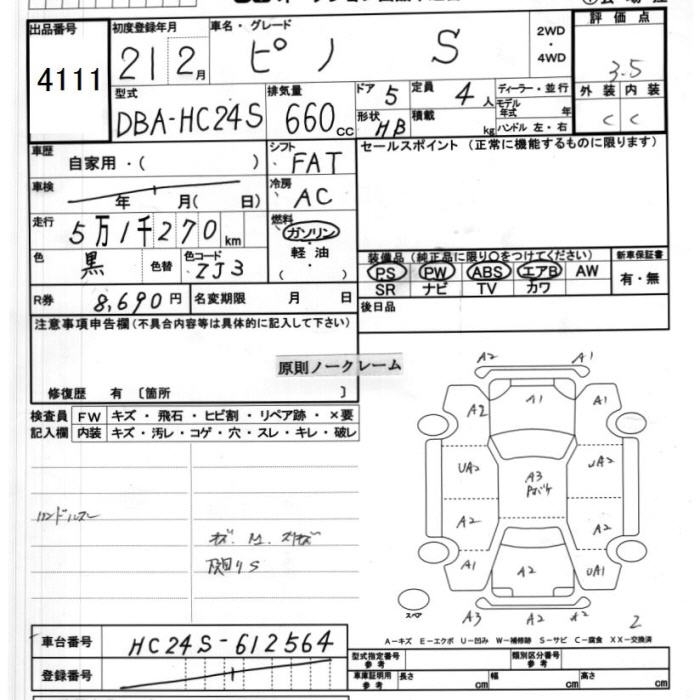 出品番号
4111
初度登録年月
21 2月
車名・グレード
ピノ S
2WD
・
4WD
評価点
3.5
外装 内装
C C
型式
DBA-HC24S
排気量
660cc
ドア 5
定員 4人
形状 HB
積載 kg
ディーラー・並行
モデル年式 年
ハンドル 左・右
車歴
自家用・( )
シフト
FAT
セールスポイント (正常に機能するものに限ります)
車検
年 月( 日)
冷房
AC
走行
5万1千270km
燃料
ガソリン
軽油
( )
色
黒
色替
色コード
ZJ3
装備品 (純正品に限り○をつけてください)
新車保証書
PS PW ABS エアB AW
有・無
SR ナビ TV カワ
R券
8,690円
名変期限 月 日
後日品
注意事項申告欄(不具合内容等は具体的に記入して下さい)
原則ノークレーム
修復歴 有 〔箇所 〕
検査員
記入欄
FW キズ・飛石・ヒビ割・リペア跡・×要
内装 キズ・汚レ・コゲ・穴・スレ・キレ・破レ
A2 A1
A2 A1 A1
UA2 A3 UA2
A2 A2
A1 A2 UA1
スペア
A3 A2 A2
2
A-キズ E-エクボ U-凹み W-補修跡 S-サビ C-腐食 XX-交換済
車台番号
HC24S-612564
登録番号
型式指定番号
参考
類別区分番号
参考
車庫証明用
参考
長さ cm
幅 cm
高さ cm